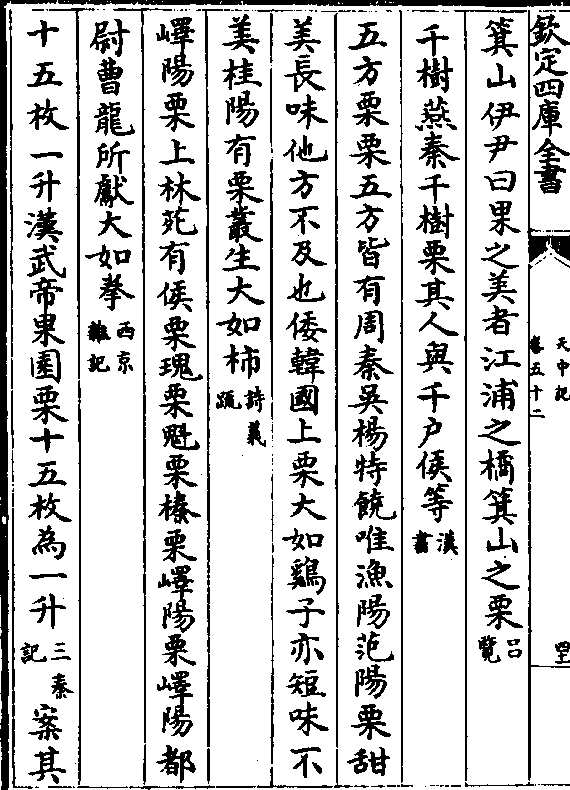 欽定四庫全書
天中記
卷五十二
箕山伊尹曰果之美者江浦之橘箕山之栗吕覽
千樹燕秦千樹栗其人與千户侯等漢書
五方栗栗五方皆有周秦吳楊特饒唯漁陽范陽栗甜
美長味他方不及也倭韓國上栗大如鷄子亦短味不
美桂陽有栗叢生大如柿詩義疏
嶧陽栗上林苑有侯栗瑰栗魁栗榛栗嶧陽栗嶧陽都
尉曹龍所獻大如拳西京雜記
十五枚一升漢武帝果園栗十五枚為一升三秦記案其